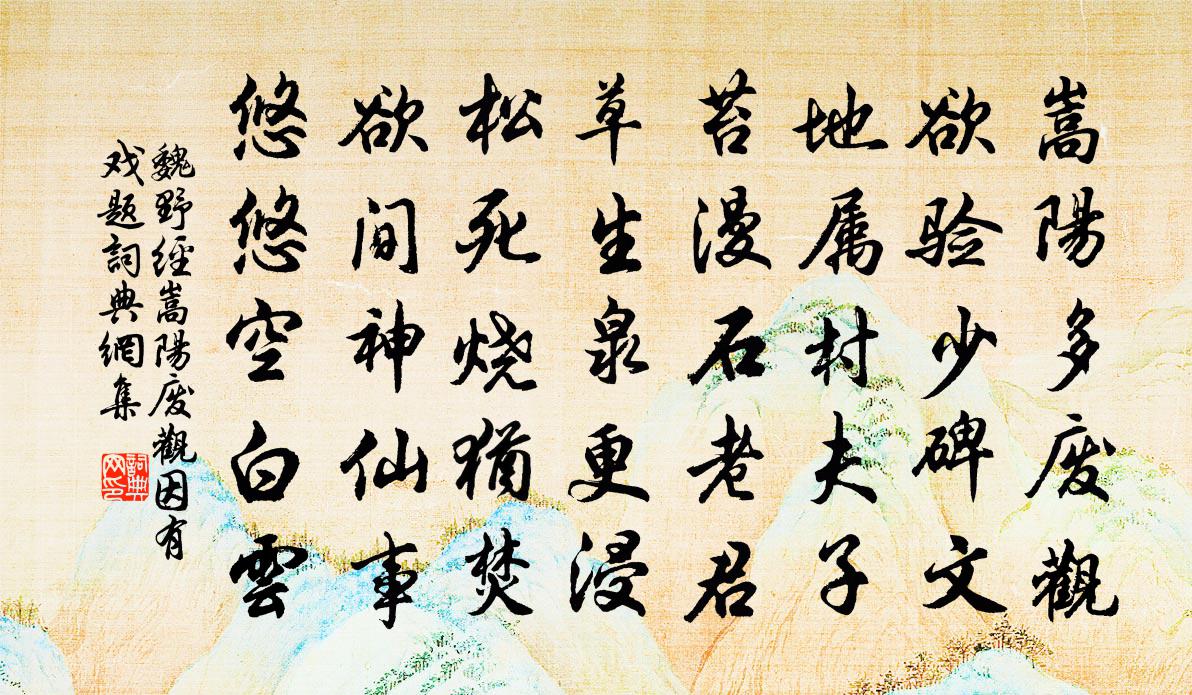 嵩陽多废觀
欲验少碑文
地属村夫子
苔漫石老君
草生泉更浸
松死烧犹焚
欲间神仙事
悠悠空白雲
魏野經嵩陽废觀因有
戏题詞典網集
詞典
网印